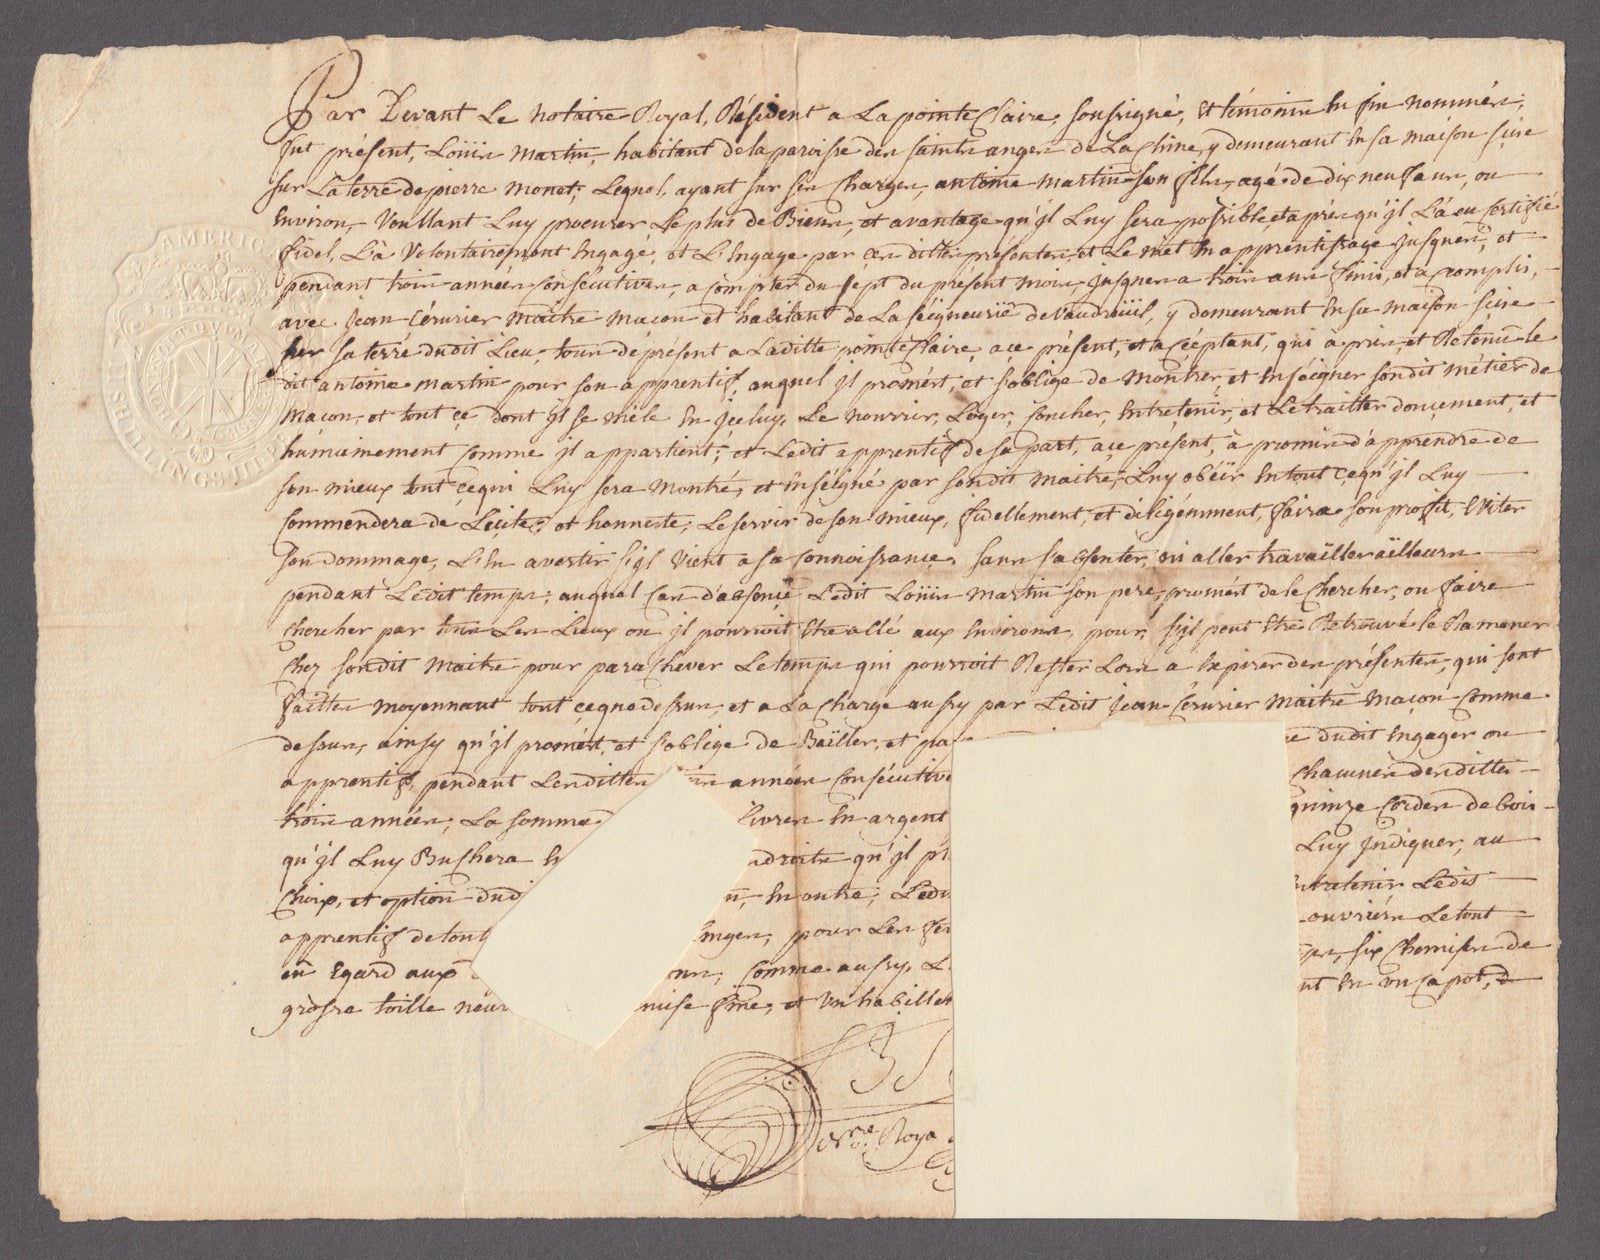 AMERICA
II SHILLINGS II
HONI SOIT QUI MAL Y PENSE
Par Devant Le notaire Royal, Résident a La pointe Claire, soussigné, et témoins en fin nommés,
fut présent, Loüis Martin, habitant de la paroisse des saints anges de La chine, y demeurant en sa maison sise
sur La terre de pierre monet; Lequel, ayant sur ses charges, antoine martin son fils, agé de dix neuf ans, ou
Environ, Voullant Luy procurer Le plus de Biens, et avantage qu'jl Luy sera possible, et après qu'jl L'a eu Certifié
fidel, L'a Volontairement Engagé, et L'Engage par ces dittes présentes, et Le met En apprentissage jusques, et
pendant trois années Consécutives, a compter du sept du présent mois, jusques a trois ans finis, et acomplis,
avec jean Cérurier maître maçon et habitant de La seigneurië de vaudreüil, y demeurant En sa maison sise
sur sa terre dudit Lieu, étant de présent a Laditte pointe Claire, a ce présent, et acéeptant, qui a pris, et Retenu le
dit antoine martin pour son apprentif, auquel jl promest, et s'oblige de montrer, et Enséigner sondit métier de
maçon, et tout ce dont jl se mêle En jceluy, Le nourrir, Loger, Coucher, Entretenir, et Le traitter doucement, et
humainement comme jl appartient; et Ledit apprentif de sa part, a ce présent, a promis d'apprendre de
son mieux tout ce qui Luy sera montré, et Enséigné par sondit maitre, Luy obéïr En tout ce qu'jl Luy
Commendera de Licite, et honneste, Le servir de son mieux, fidellement, et diligemment, faire son profit, Eviter
son dommage, L'En avertir s'jl vient a sa connoissance, sans s'absenter, ou aller travaïller aïlleurs
pendant Ledit temps; auquel Cas d'absence Ledit Loüis martin son pere, promest de le Chercher, ou faire
chercher par tous Les Lieux ou jl pourroit Etre allé aux Environs, pour, s'jl peut Etre Retrouvé le Ramener
chez sondit maitre pour parachever Le temps qui pourroit Rester Lors a Expirer des présentes, qui sont
faittes moyennant tout ce que dessus, et a La charge aussy par Ledit jean Cérurier maitre maçon comme
dessus, ainsy qu'jl promest, et s'oblige de Baïller, et pa dudit Engager ou
apprentif, pendant Lesdittes années Consécutive chacunes desdittes
trois années, La somme livres En argent quinze Cordes de bois
qu'jl Luy Buchera qu'jl Luy jndiquer, au
choix, et option dudi En outre, Ledi Entretenir Ledit
apprentif de tout Linges, pour Les ouvriers Le tout
eü Egard aux comme aussy, L six chemises de
grosse toille neuv mise fine, et Un habillem En un capot, d
Nre. Roya